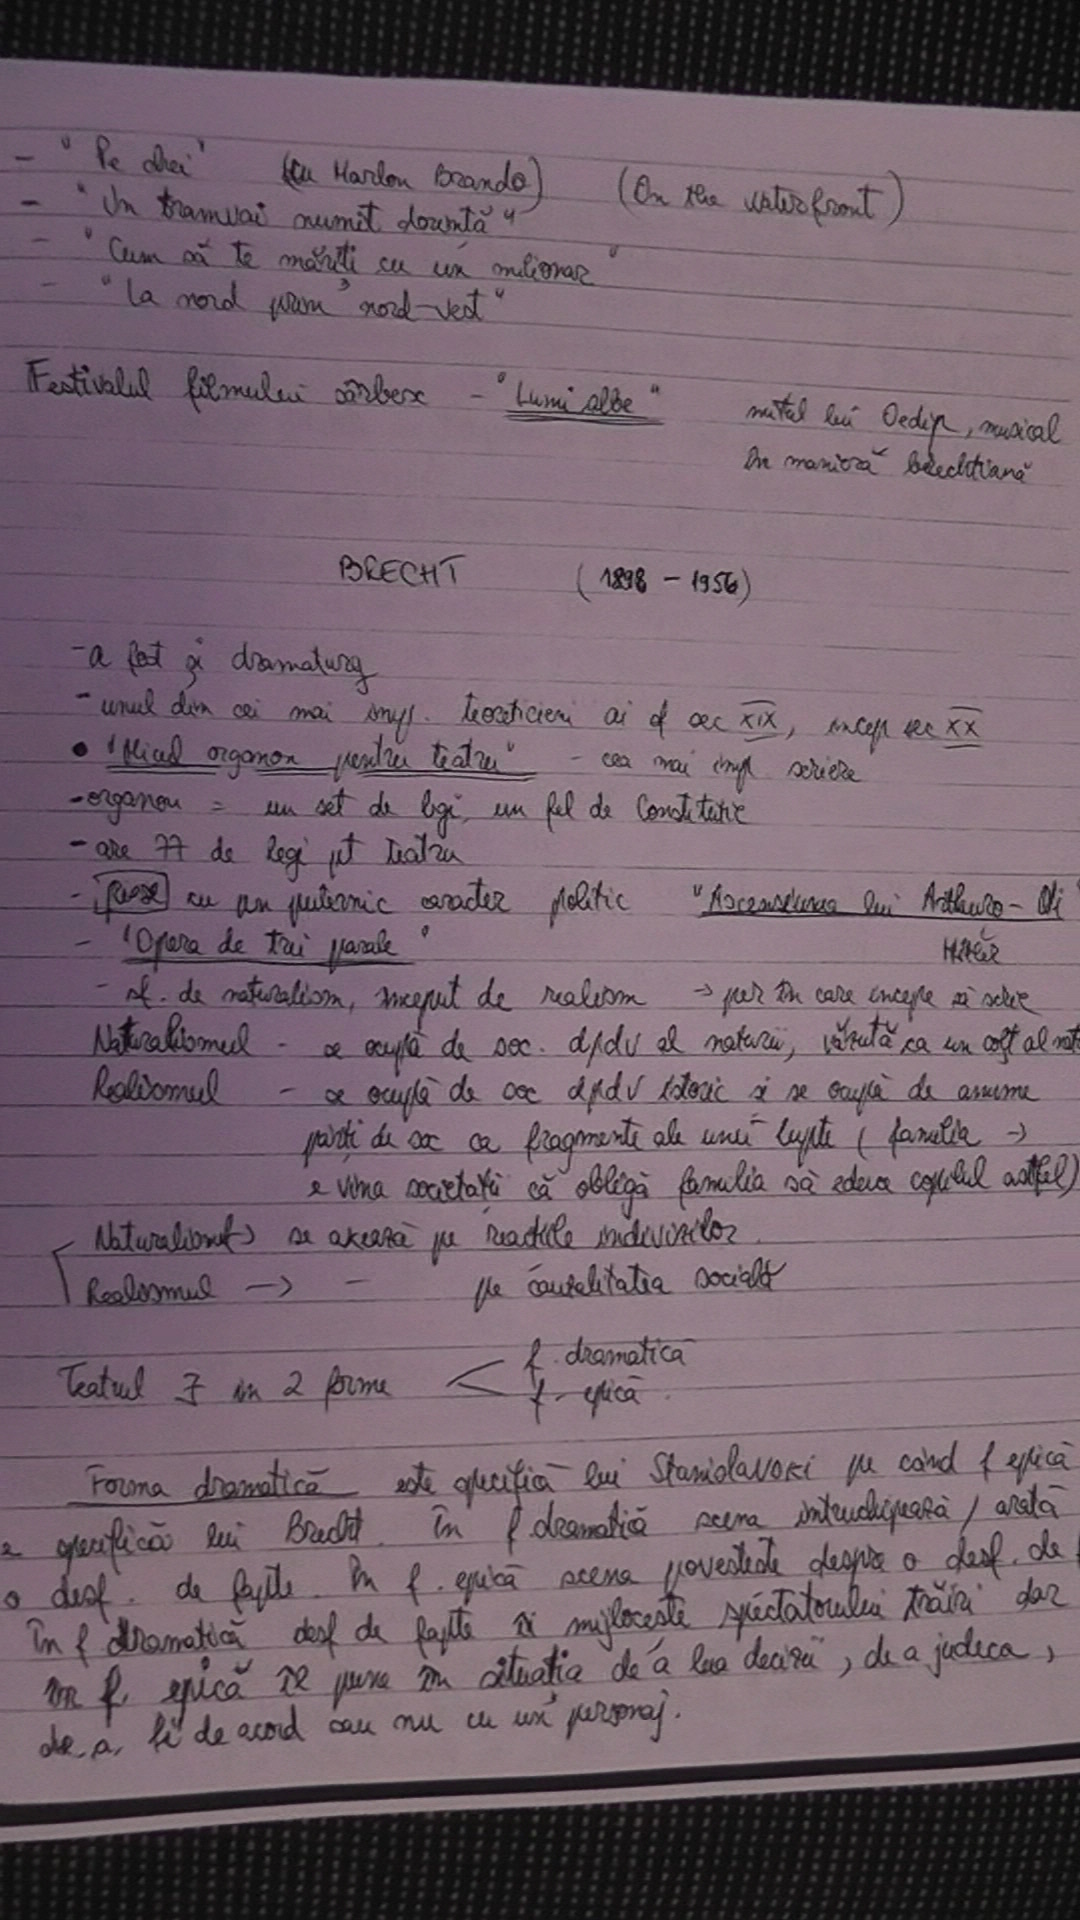 - "Pe chei" (cu Marlon Brando) (On the waterfront)
- "Un tramvai numit dorință"
- "Cum să te măriți cu un milionar"
- "La nord prin nord-vest"
Festivalul filmului sârbesc - "Lumi albe" mitul lui Oedip, musical
în manieră brechtiană
BRECHT (1898 - 1956)
- a fost și dramaturg
- unul din cei mai imp. teoreticieni ai sf sec XIX, încep sec XX
• "Micul organon pentru teatru" - cea mai imp scriere
- organon = un set de legi, un fel de Constituție
- are 77 de legi pt teatru
- piese cu un puternic caracter politic "Ascensiunea lui Arthuro-Ui"
Hitler
- "Opera de trei parale"
- sf. de naturalism, început de realism → per în care începe să scrie
Naturalismul - se ocupă de soc. dpdv al naturii, văzută ca un colț al nat
Realismul - se ocupă de soc dpdv istoric și se ocupă de anume
părți de soc ca fragmente ale unei lupte (familia →
e vina societății că obligă familia să educe copilul astfel)
Naturalismul → se axează pe reacțiile indivizilor
Realismul → - pe cauzalitatea socială
Teatrul în 2 forme < f. dramatică
f. epică
Forma dramatică este specifică lui Stanislavski pe când f epică
e specifică lui Brecht. În f dramatică scena întruchipează / arată
o desf. de fapte. În f. epică scena povestește despre o desf. de f
În f dramatică desf de fapte îi mijlocește spectatorului trăiri dar
în f. epică îl pune în situația de a lua decizii, de a judeca,
de a fi de acord sau nu cu un personaj.